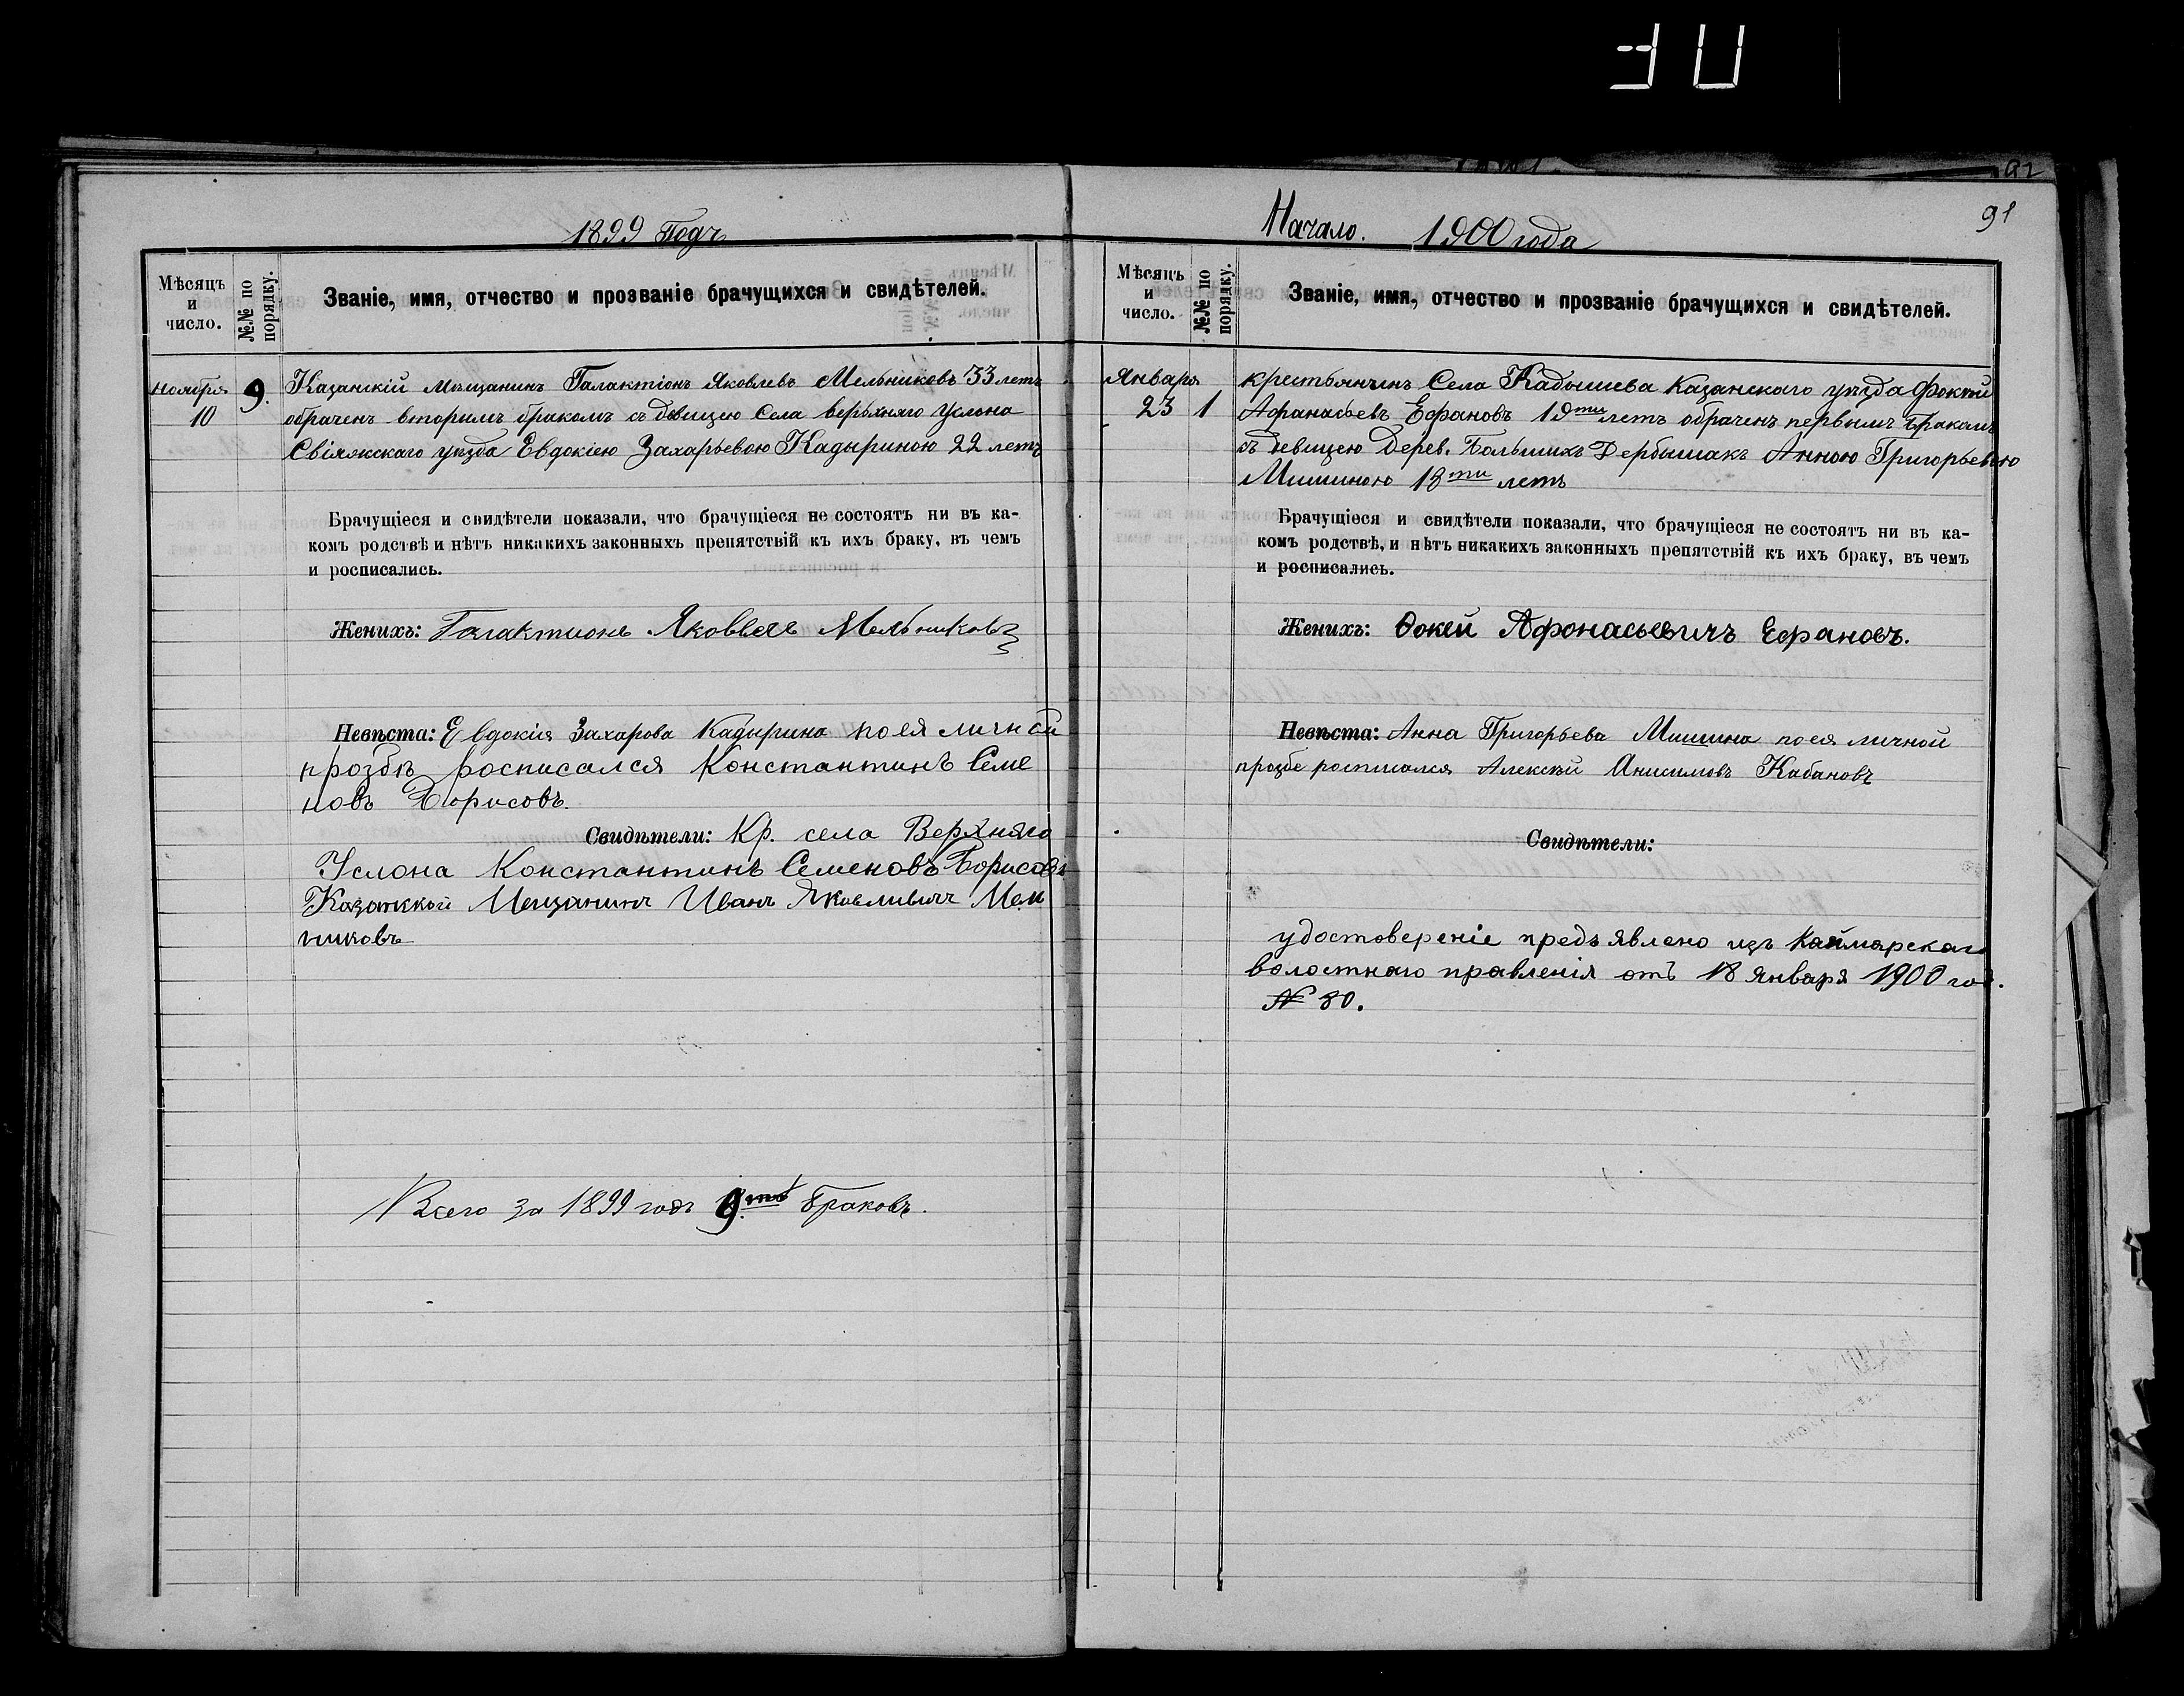 91
1899 Годъ
Мѣсяцъ и число.
№№ по порядку.
Званіе, имя, отчество и прозваніе брачущихся и свидѣтелей.
Ноября 10
9.
Казанскій мѣщанинъ Галактіонъ Яковлевъ Мельниковъ 33 летъ
обраченъ вторымъ бракомъ съ девицею Села верьхняго Услона
Свіяжскаго уѣзда Евдокіею Захарьевою Кадыриною 22 летъ
Брачущіеся и свидѣтели показали, что брачущіеся не состоятъ ни въ ка-
комъ родствѣ и нѣтъ никакихъ законныхъ препятствій къ ихъ браку, въ чемъ
и росписались.
Женихъ: Галактионъ Яковлевъ Мельниковъ
Невѣста: Евдокія Захарова Кадырина по ея личной
прозбѣ росписался Константинъ Семе
новъ Борисовъ.
Свидѣтели: Кр. села Верхняго
Услона Константинъ Семеновъ Борисовъ
Казанкой Мещанинъ Иванъ Яковливичъ Мел
никовъ
Всего за 1899 годъ 9 браковъ.
Начало. 1900 года
Мѣсяцъ и число.
№№ по порядку.
Званіе, имя, отчество и прозваніе брачущихся и свидѣтелей.
Января 23
1
крестьянинъ Села Кадышева Казанскаго уѣзда Фоктй
Афанасьевъ Ефановъ 19ти летъ обраченъ первымъ бракомъ
съ девицею Дерев. Большихъ Дербышакъ Анною Григорьевою
Мишиною 18ти летъ
Брачущіеся и свидѣтели показали, что брачущіеся не состоятъ ни въ ка-
комъ родствѣ, и нѣтъ никакихъ законныхъ препятствій къ ихъ браку, въ чемъ
и росписались.
Женихъ: Ѳокей Афонасьевичъ Ефановъ.
Невѣста: Анна Григорьева Мишина по ея личной
прозбе росписался Алексѣй Анисимовъ Кабановъ
Свидѣтели:
удостовереніе предъявлено изъ Каймарскаго
волостнаго правленія отъ 18 января 1900 год.
№ 80.